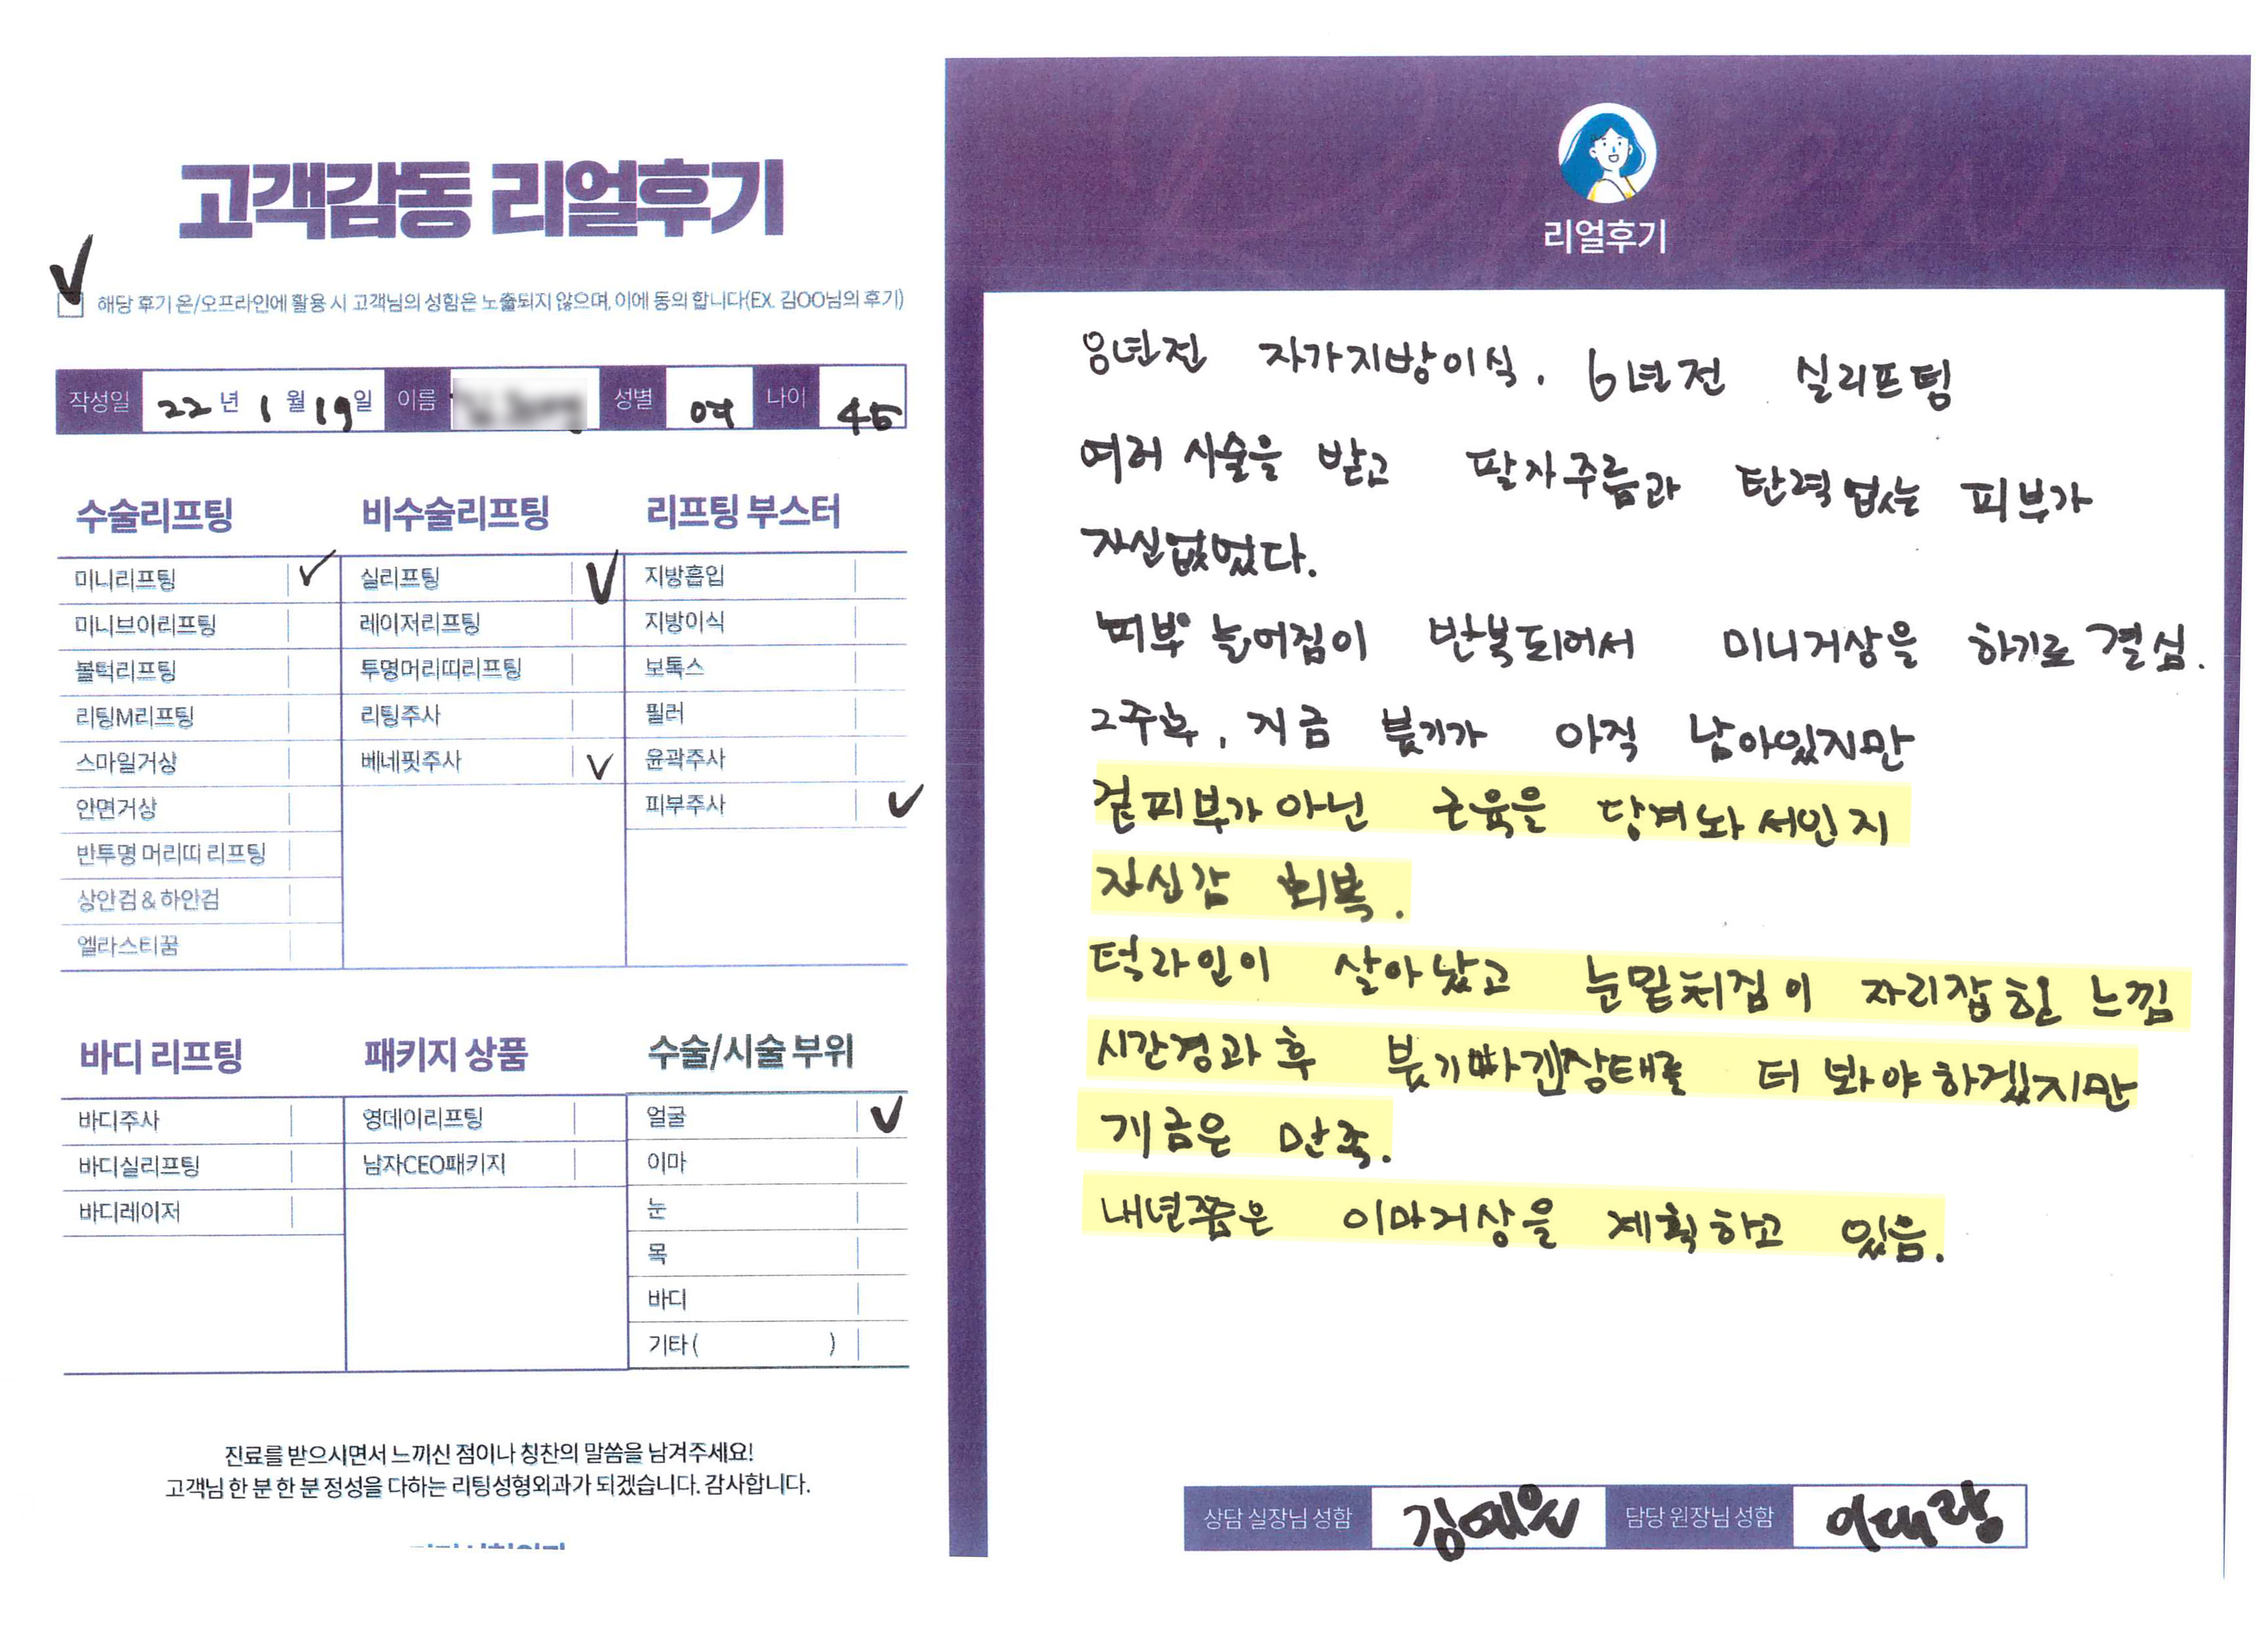 고객감동 리얼후기
해당 후기 온/오프라인에 활용 시 고객님의 성함은 노출되지 않으며, 이에 동의 합니다(EX. 김OO님의 후기)
작성일 22년 1월 19일 이름 성별 여 나이 45
수술리프팅
미니리프팅 ✓
미니브이리프팅
볼턱리프팅
리팅M리프팅
스마일거상
안면거상
반투명 머리띠 리프팅
상안검 & 하안검
엘라스티꿈
비수술리프팅
실리프팅 ✓
레이저리프팅
투명머리띠리프팅
리팅주사
베네핏주사 ✓
리프팅 부스터
지방흡입
지방이식
보톡스
필러
윤곽주사
피부주사 ✓
바디 리프팅
바디주사
바디실리프팅
바디레이저
패키지 상품
영데이리프팅
남자CEO패키지
수술/시술 부위
얼굴 ✓
이마
눈
목
바디
기타 ( )
진료를 받으시면서 느끼신 점이나 칭찬의 말씀을 남겨주세요!
고객님 한 분 한 분 정성을 다하는 리팅성형외과가 되겠습니다. 감사합니다.
리얼후기
8년전 자가지방이식. 6년전 실리프팅
여러 시술을 받고 팔자주름과 탄력없는 피부가
자신없었다.
피부 늘어짐이 반복되어서 미니거상을 하기로 결심.
2주후, 지금 붓기가 아직 남아있지만
겉피부가 아닌 근육을 당겨놔서인지
자신감 회복.
턱라인이 살아났고 눈밑처짐이 자리잡힌 느낌
시간경과 후 붓기빠진상태를 더 봐야하겠지만
지금은 만족.
내년쯤은 이마거상을 계획하고 있음.
상담 실장님 성함 김예은 담당 원장님 성함